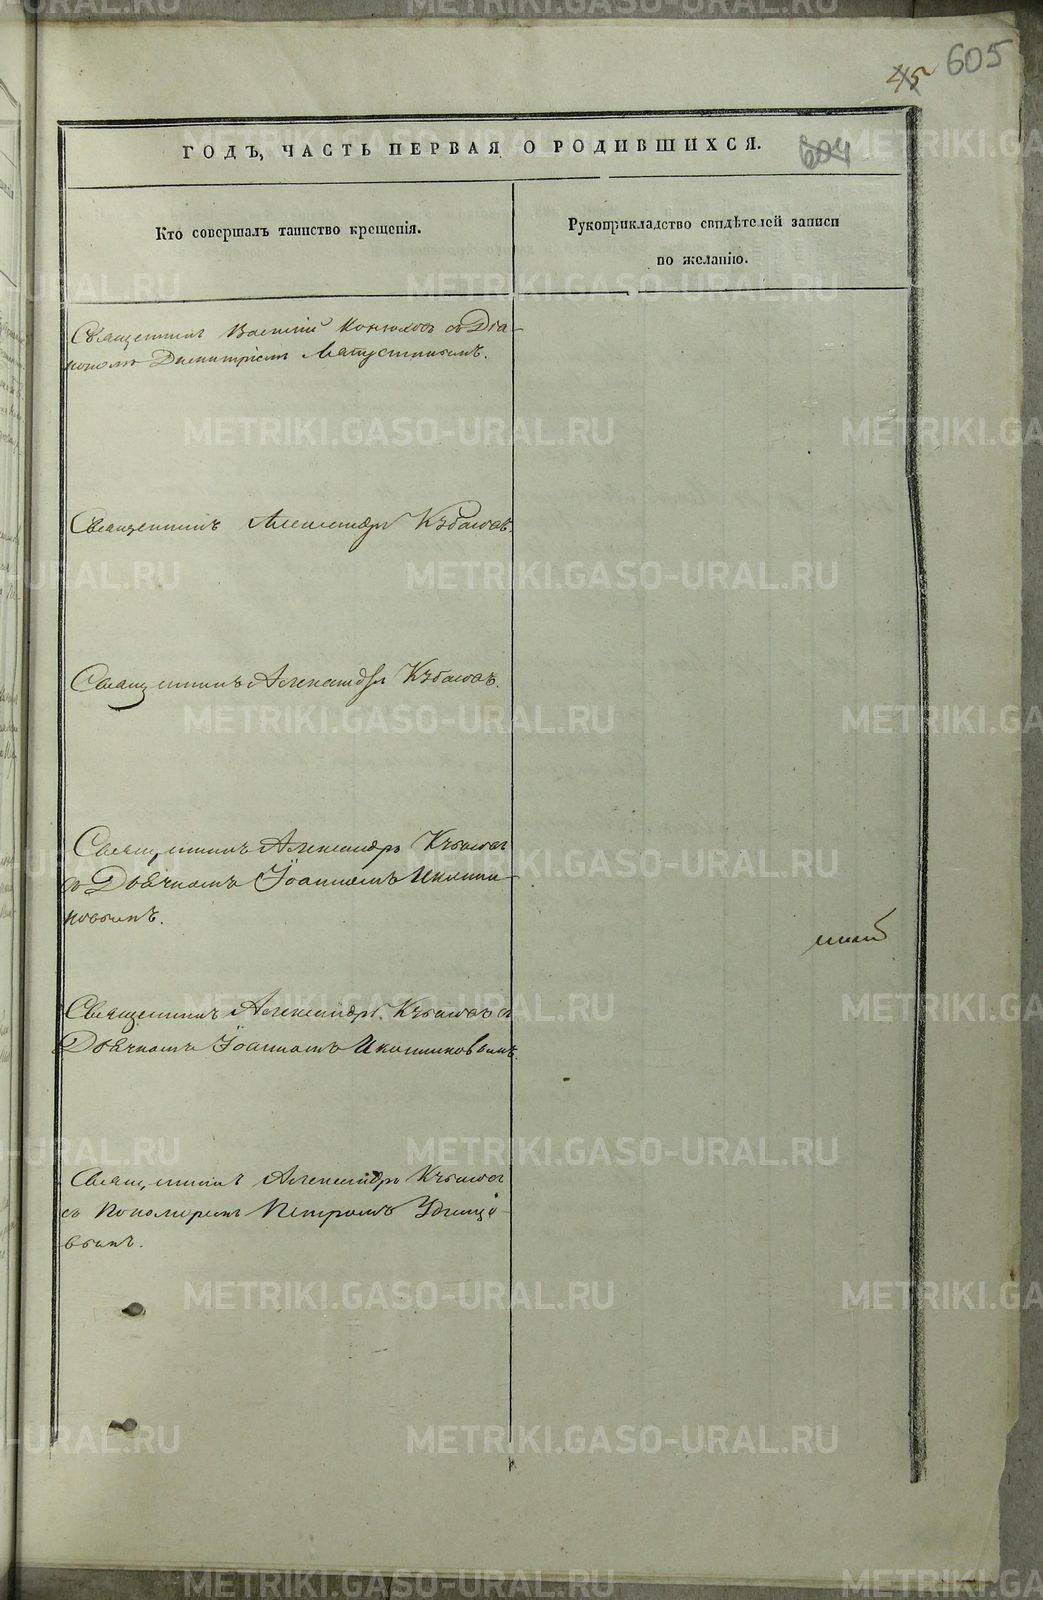 45 605
ГОДЪ, ЧАСТЬ ПЕРВАЯ О РОДИВШИХСЯ. 604
Кто совершалъ таинство крещенія.
Рукоприкладство свидѣтелей записи
по желанію.
Священникъ Василій Конюховъ съ Діа-
кономъ Димитріемъ
Священникъ Александръ Кубасовъ.
Священникъ Александръ Кубасовъ.
Священникъ Александръ Кубасовъ
съ Дьячкомъ Іоанномъ Иконни-
ковымъ.
Священникъ Александръ Кубасовъ съ
Дьячкомъ Іоанномъ Иконниковымъ.
Священникъ Александръ Кубасовъ
съ Пономаремъ Петромъ Удинце-
вымъ.
METRIKI.GASO-URAL.RU